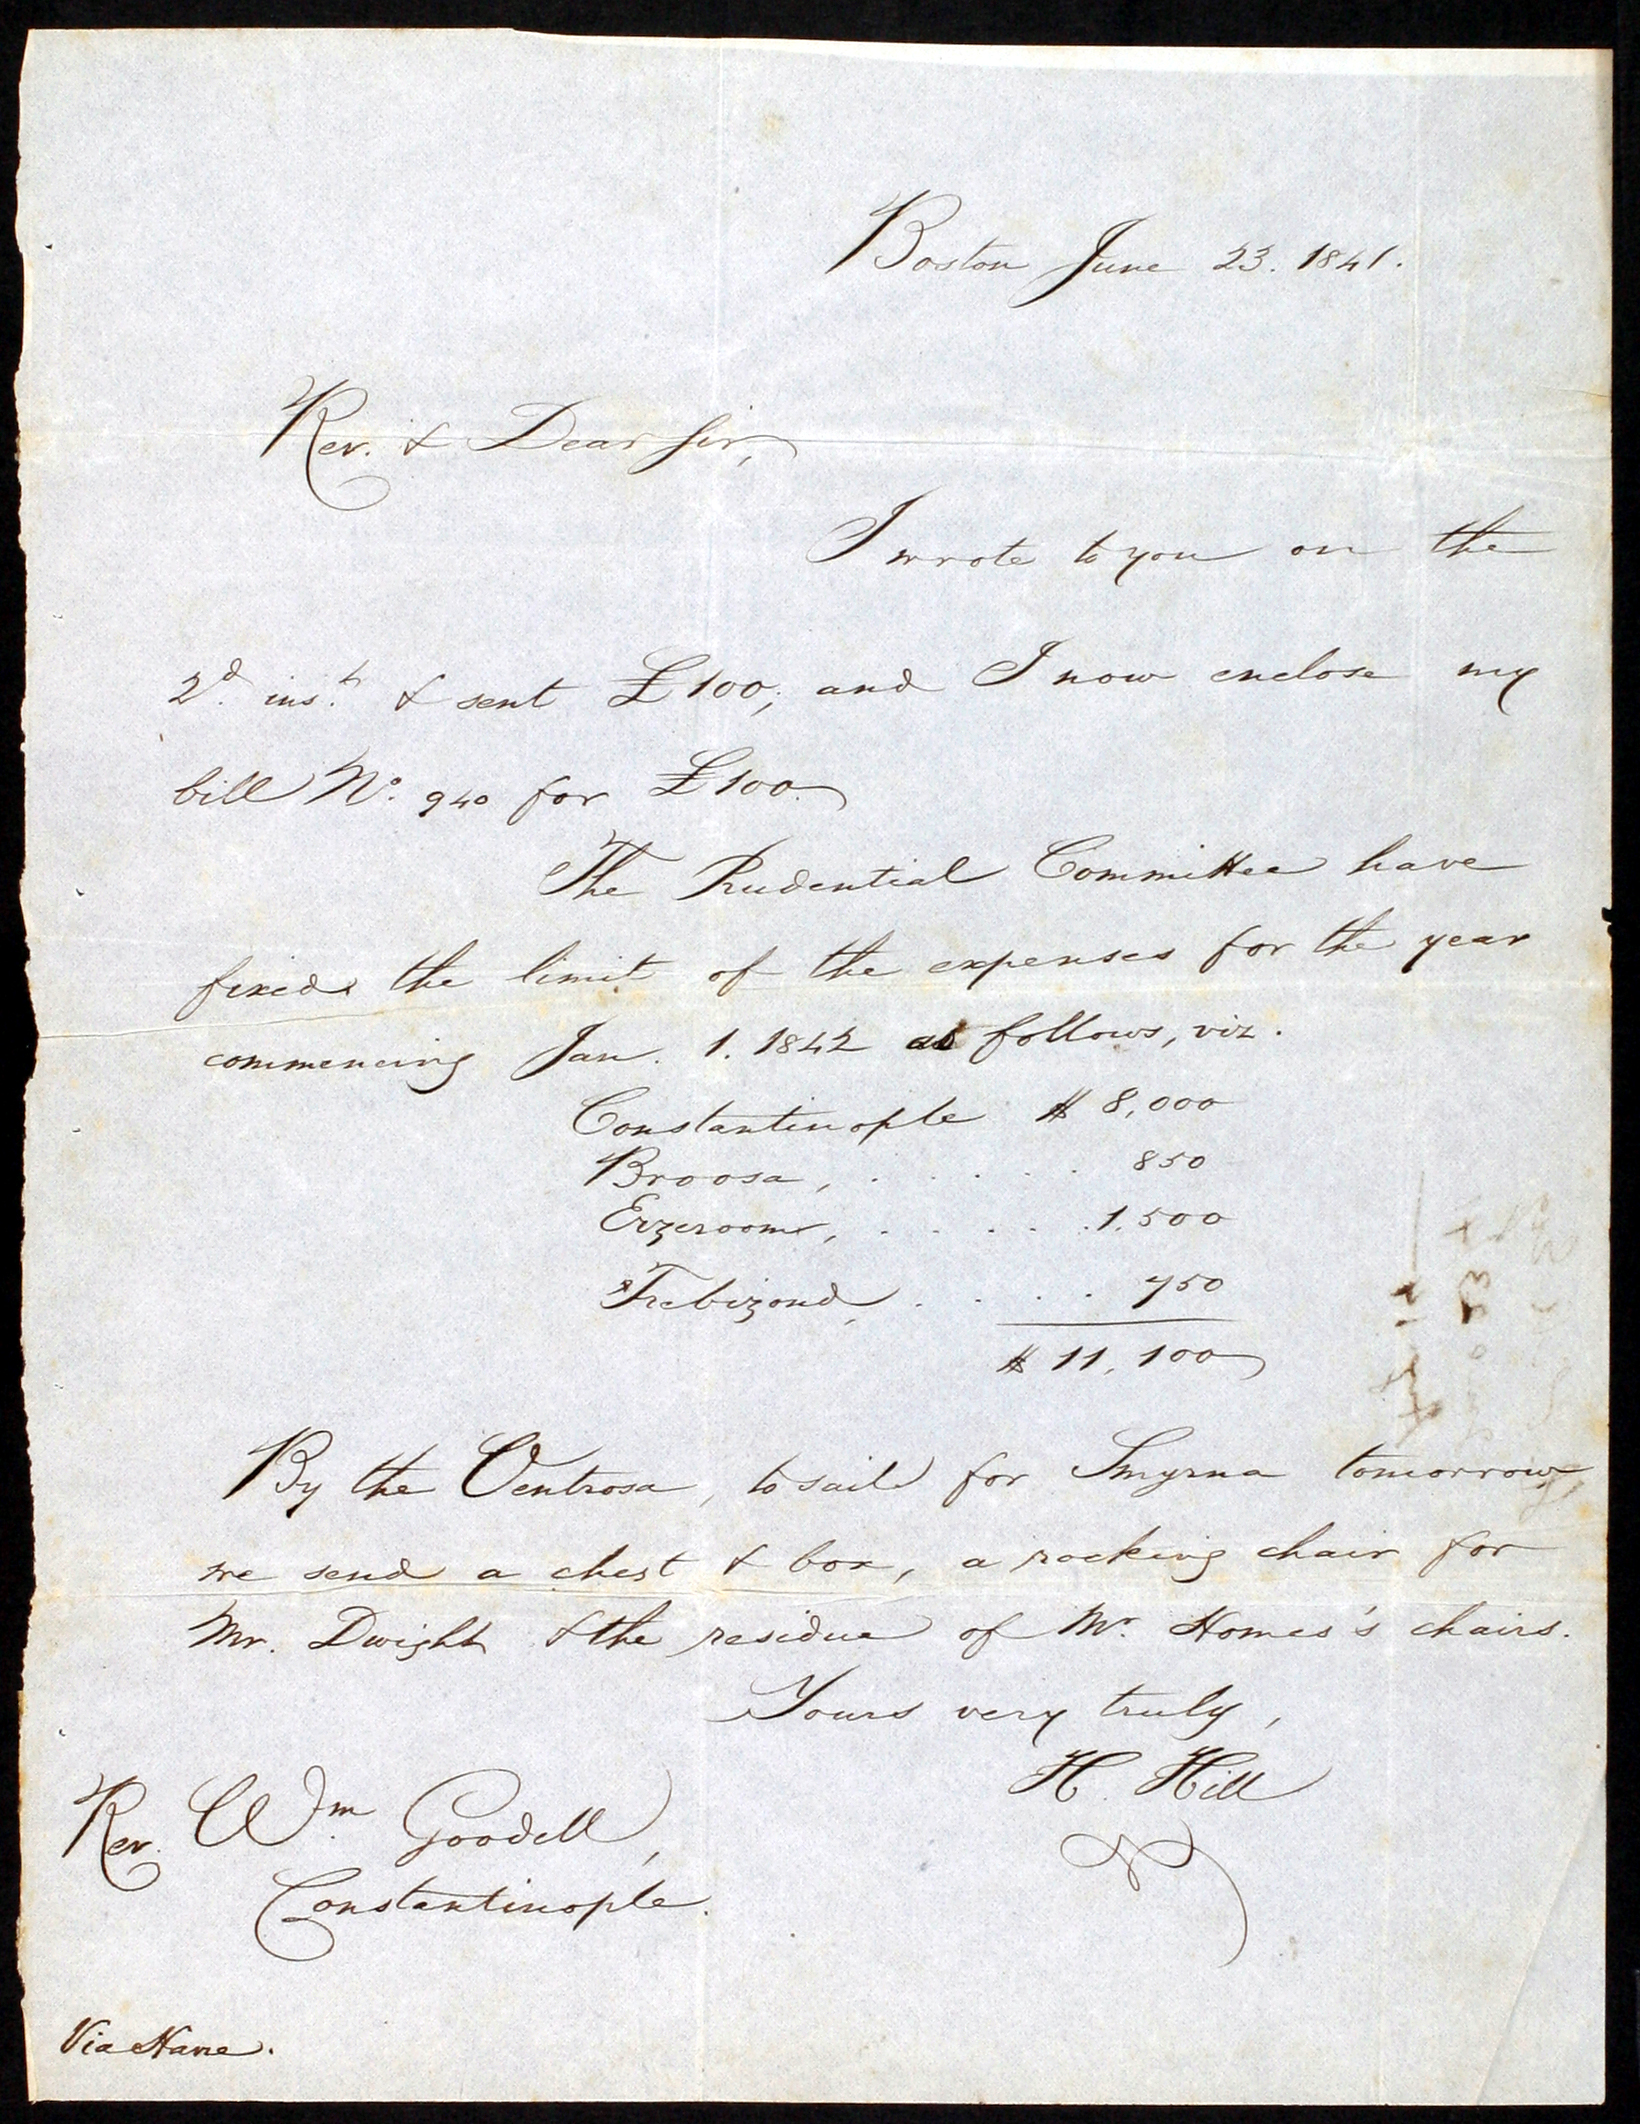 Boston June 23. 1841.
Rev. & Dear Sir,
I wrote to you on the
2d. inst. & sent £100; and I now enclose my
bill No. 940 for £100.
The Prudential Committee have
fixed the limit of the expenses for the year
commencing Jan. 1. 1842 as follows, viz.
Constantinople $ 8,000
Broosa, . . . . . 850
Erzeroom, . . . . . 1,500
Trebizond, . . . . 750
$ 11,100
By the Ventrosa, to sail for Smyrna tomorrow,
we send a chest & box, a rocking chair for
Mr. Dwight & the residue of Mr. Homes's chairs.
Yours very truly,
H. Hill
Rev. Wm Goodell,
Constantinople.
Via Havre.